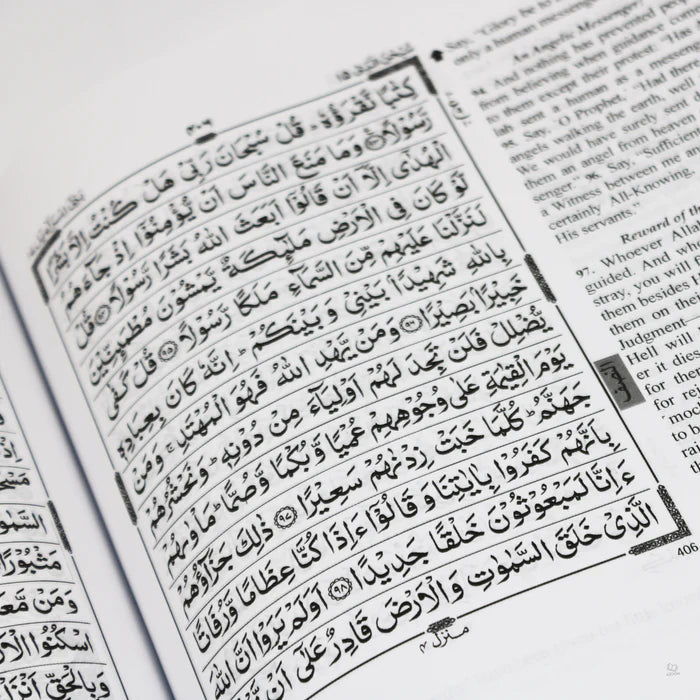 كِتٰبًا نَّقْرَؤُهٗ ؕ قُلْ سُبْحَانَ رَبِّیْ هَلْ كُنْتُ اِلَّا بَشَرًا
رَّسُوْلًا ﴿۹۳﴾ وَمَا مَنَعَ النَّاسَ اَنْ يُّؤْمِنُوْۤا اِذْ جَآءَهُمُ
الْهُدٰۤى اِلَّاۤ اَنْ قَالُوْۤا اَبَعَثَ اللّٰهُ بَشَرًا رَّسُوْلًا ﴿۹۴﴾ قُلْ
لَّوْ كَانَ فِی الْاَرْضِ مَلٰٓئِكَةٌ يَّمْشُوْنَ مُطْمَئِنِّيْنَ
لَنَزَّلْنَا عَلَيْهِمْ مِّنَ السَّمَآءِ مَلَكًا رَّسُوْلًا ﴿۹۵﴾ قُلْ كَفٰى
بِاللّٰهِ شَهِيْدًۢا بَيْنِیْ وَبَيْنَكُمْ ؕ اِنَّهٗ كَانَ بِعِبَادِهٖ
خَبِيْرًۢا بَصِيْرًا ﴿۹۶﴾ وَمَنْ يَّهْدِ اللّٰهُ فَهُوَ الْمُهْتَدِ ۚ وَمَنْ
يُّضْلِلْ فَلَنْ تَجِدَ لَهُمْ اَوْلِيَآءَ مِنْ دُوْنِهٖ ؕ وَنَحْشُرُهُمْ
يَوْمَ الْقِيٰمَةِ عَلٰى وُجُوْهِهِمْ عُمْيًا وَّبُكْمًا وَّصُمًّا ؕ مَاْوٰىهُمْ
جَهَنَّمُ ؕ كُلَّمَا خَبَتْ زِدْنٰهُمْ سَعِيْرًا ﴿۹۷﴾ ذٰلِكَ جَزَآؤُهُمْ
بِاَنَّهُمْ كَفَرُوْا بِاٰيٰتِنَا وَقَالُوْۤا ءَاِذَا كُنَّا عِظَامًا وَّرُفَاتًا
ءَاِنَّا لَمَبْعُوْثُوْنَ خَلْقًا جَدِيْدًا ﴿۹۸﴾ اَوَلَمْ يَرَوْا اَنَّ اللّٰهَ
الَّذِیْ خَلَقَ السَّمٰوٰتِ وَالْاَرْضَ قَادِرٌ عَلٰۤى اَنْ
منزل ۴
النصف
Say, "Glory be to
only a human messenger
An Angelic Messenger?
94. And nothing has prevented people
from believing when guidance came
to them except their protest: "Has
lah sent a human as a messenger
95. Say, O Prophet, "Had there
angels walking the earth, well
We would have surely sent
them an angel from heaven
senger." 96. Say, "Sufficient
a Witness between me and
certainly All-Knowing,
His servants."
Reward of the
97. Whoever Allah
guided. And who
stray, you will
them besides
them on the
Judgment
Hell will
er it dies
for them
for re
to b
406
اِذْ
مَثْبُوْرًا
وَمَنْ مَّعَ
اسْكُنُوا الْاَرْ
وَبِالْحَقِّ اَنْزَلْ